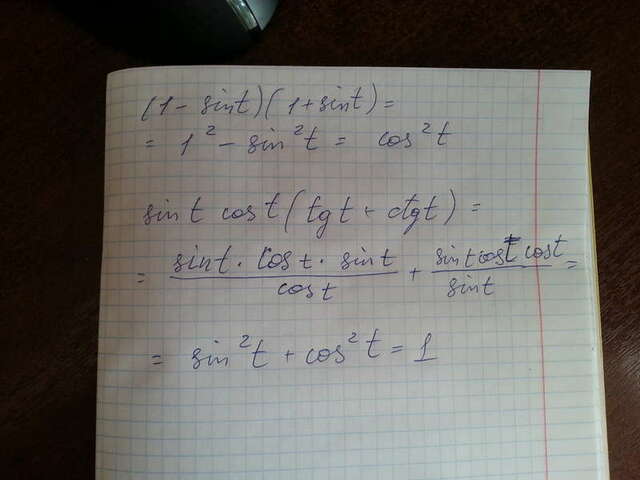 (1 - sin t)(1 + sin t) =
= 1² - sin²t = cos²t
sin t cos t (tg t + ctg t) =
= \frac{sin t · cos t · sin t}{cos t} + \frac{sin t cos t cos t}{sin t} =
= sin²t + cos²t = 1